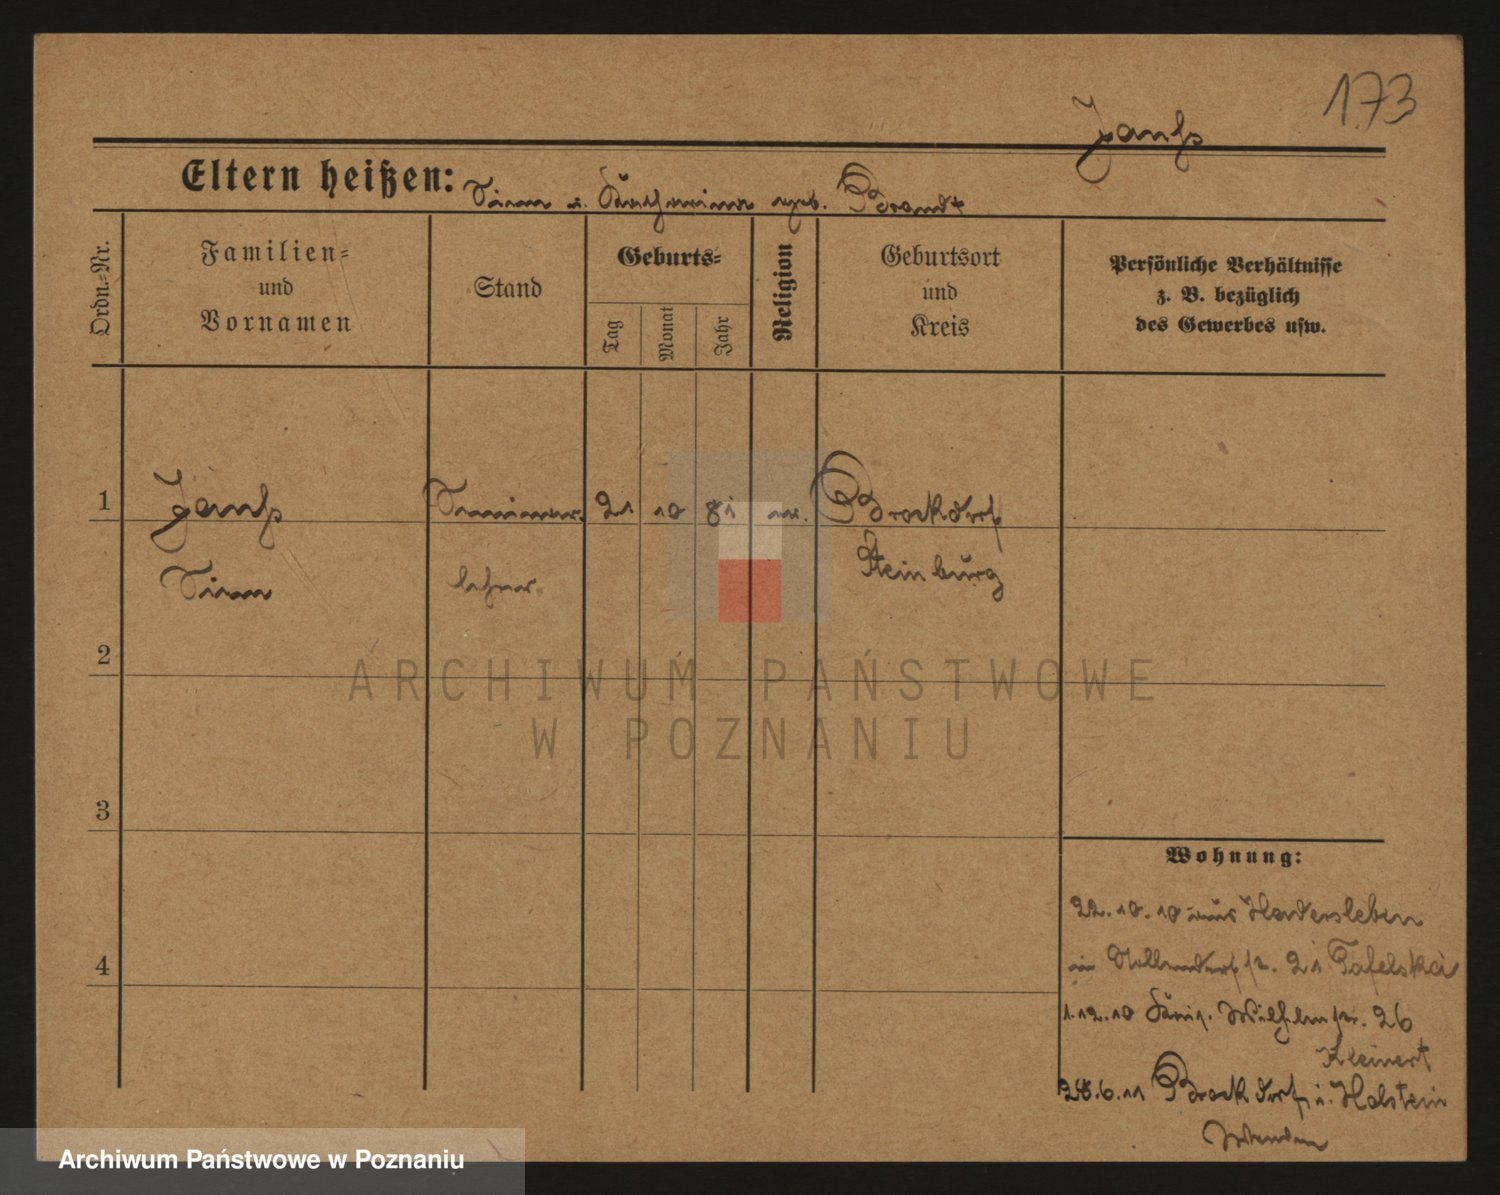 173
Janß
Eltern heißen: Timm u. geb. Brandt
Ordn.=Nr.
Familien=
und
Vornamen
Stand
Geburts=
Tag
Monat
Jahr
Religion
Geburtsort
und
Kreis
Persönliche Verhältnisse
z. B. bezüglich
des Gewerbes usw.
1
Janß
Seminar.
21 10 81 ev.
Brockdorf
Timm
lehrer.
Steinburg
2
ARCHIWUM PAŃSTWOWE
W POZNANIU
3
Wohnung:
22.10.10 aus Hadersleben
4
in str. 21 Tafelski
1.12.10 Wilhelmstr. 26
Kleinert
28.6.11 Brockdorf i. Holstein
Archiwum Państwowe w Poznaniu